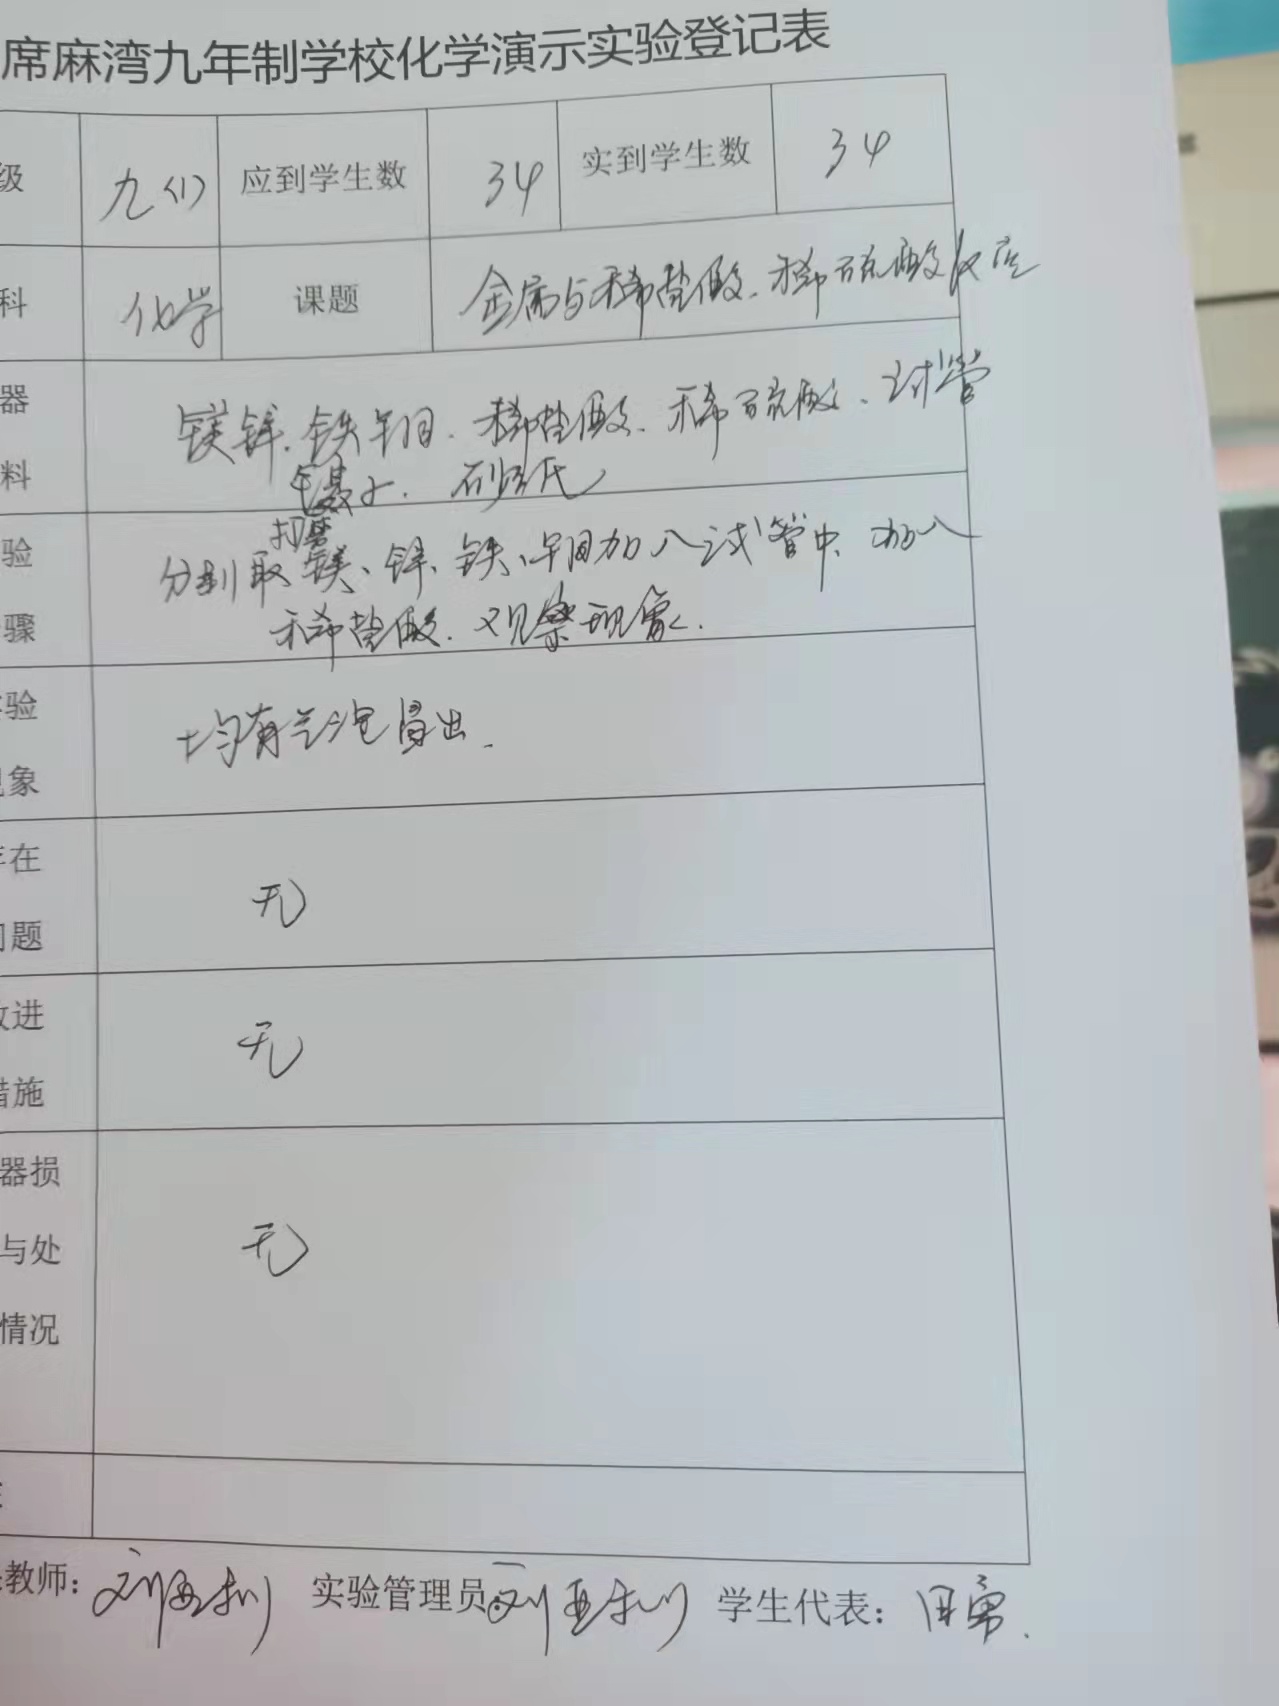 席麻湾九年制学校化学演示实验登记表
级 九(1) 应到学生数 34 实到学生数 34
科 化学 课题 金属与稀盐酸、稀硫酸反应
器
料
镁锌、铁铜、稀盐酸、稀硫酸、试管
镊子、砂纸
验
骤
打磨
分别取镁、锌、铁、铜加入试管中、加入
稀盐酸、观察现象.
验
象
均有气泡冒出.
在
题
无
进
措施
无
器损
与处
情况
无
教师: 实验管理员: 学生代表: